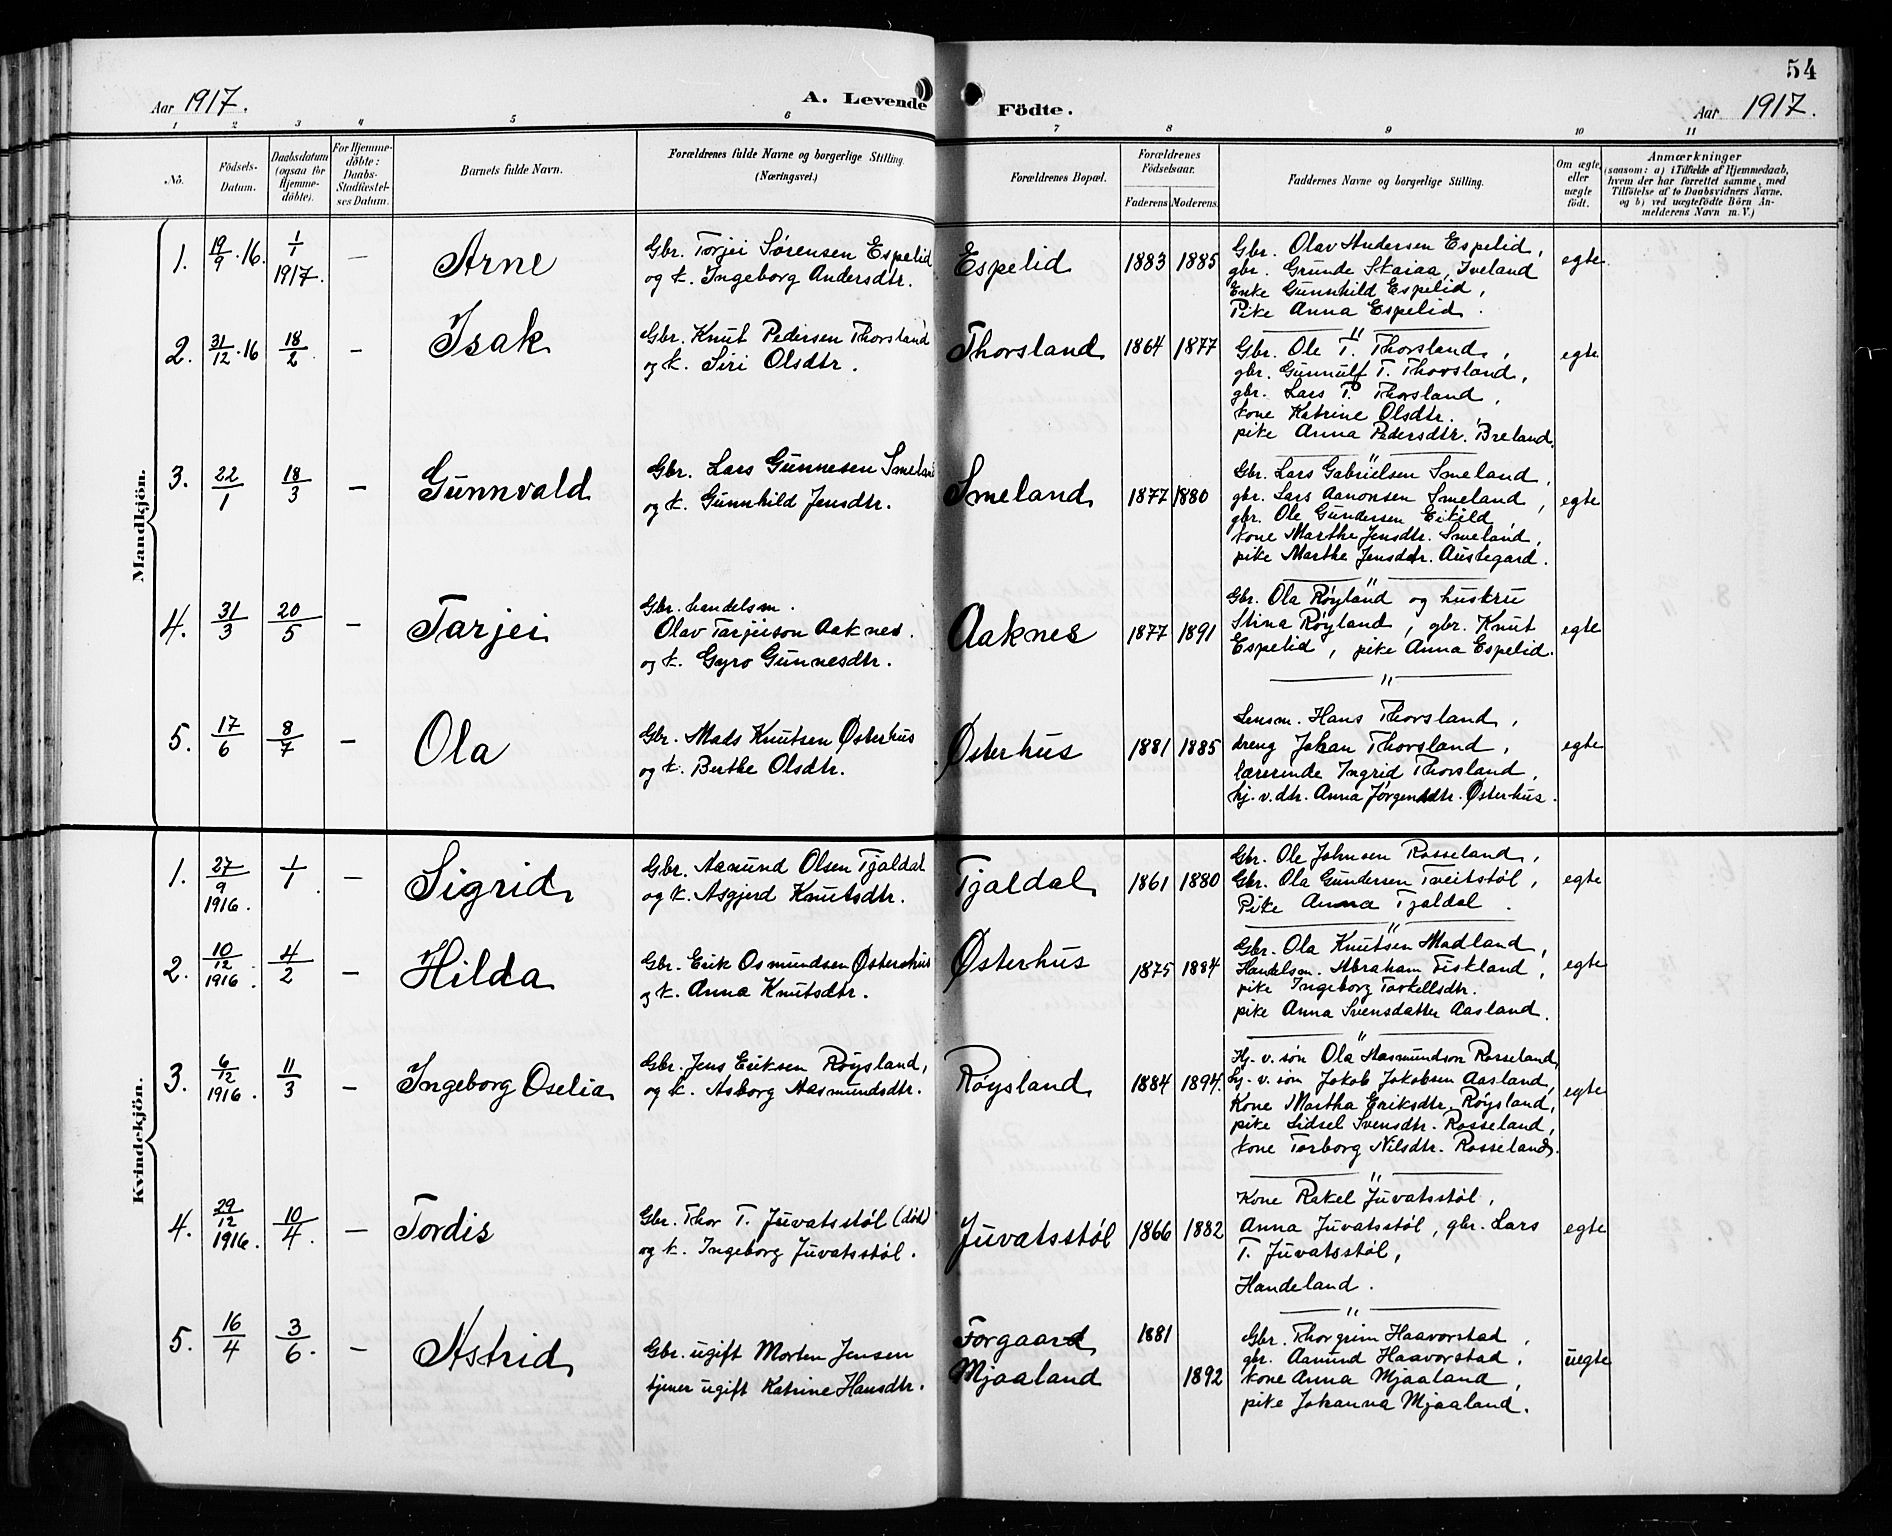 54
Aar 1917.
A. Levende Födte.
Aar 1917.
1 2 3 4 5 6 7 8 9 10 11
No.
Födsels-
Datum.
Daabsdatum
(ogsaa för
Hjemme-
döbte).
For Hjemme-
döbte:
Daabs-
Stadfæstel-
ses Datum.
Barnets fulde Navn.
Forældrenes fulde Navne og borgerlige Stilling
(Næringsvei.)
Forældrenes Bopæl.
Forældrenes
Födselsaar.
Faderens Moderens.
Faddernes Navne og borgerlige Stilling.
Om ægte
eller
uægte
födt.
Anmærkninger
(saasom: a) i Tilfælde af Hjemmedaab,
hvem der har forrettet samme, med
Tilföielse af to Daabsvidners Navne,
og b) ved uægtefödte Börn An-
melderens Navn m. V.)
Mandkjön.
1. 19/9 16. 1/1 1917. — Arne
Gbr. Torjei Sørensen Espelid
og k. Ingeborg Andersdtr.
Espelid 1883 1885
Gbr. Olav Andersen Espelid,
gbr. Grunde Skaiaa, Iveland
Enke Gunnhild Espelid,
Pike Anna Espelid.
egte.
2. 31/12 16 18/2 — Isak
Gbr. Knut Pedersen Thorsland
og k. Siri Olsdtr.
Thorsland 1864 1877
Gbr. Ole T. Thorsland,
gbr. Gunnulf T. Thorsland,
gbr. Lars P. Thorsland,
kone Katrine Olsdtr.
pike Anna Pedersdtr. Breland.
egte
3. 22/1 18/3 — Gunnvald
Gbr. Lars Gunnesen Smeland
og k. Gunnhild Jensdtr.
Smeland 1877 1880
Gbr. Lars Gabrielsen Smeland,
gbr. Lars Aanonsen Smeland,
gbr. Ole Gundersen Eikild,
kone Marthe Jensdtr. Smeland,
pike Marthe Jensdtr. Austegard.
egte
4. 31/3 20/5 — Tarjei
Gbr. handelsm.
Olav Tarjeison Aaknes.
og k. Gyro Gunnesdtr.
Aaknes 1877 1891
Gbr. Ola Røyland og hustru
Stina Røyland, gbr. Knut
Espelid, pike Anna Espelid.
egte
5. 17/6 8/7 — Ola
Gbr. Mads Knutsen Østerhus
og k. Berthe Olsdtr.
Østerhus 1881 1885
Lensm. Hans Thorsland,
dreng Johan Thorsland,
lærerinde Ingrid Thorsland,
hj. v. dtr. Anna Jørgensdtr. Østerhus.
egte
Kvindekjön.
1. 27/9 1916. 1/1. — Sigrid
Gbr. Aamund Olsen Tjaldal
og k. Asgjerd Knutsdtr.
Tjaldal 1861 1880
Gbr. Ole Johnsen Rosseland,
Gbr. Ola Gundersen Tveitstøl,
Pike Anna Tjaldal.
egte
2. 10/12 1916. 4/2 — Hilda
Gbr. Erik Osmundsen Østerhus
og k. Anna Knutsdtr.
Østerhus 1875 1884
Gbr. Ola Knutsen Madland,
Handelsm. Abraham Fiskland,
pike Ingeborg Torkellsdtr.
pike Anna Svensdatter Aasland.
egte
3. 6/12 1916. 11/3 — Ingeborg Oselia
Gbr. Jens Eriksen Røysland,
og k. Asborg Aasmundsdtr.
Røysland 1884 1894.
Hj. v. søn Ola Aasmundson Rosseland,
hj. v. søn Jakob Jakobsen Aasland,
Kone Martha Eriksdtr. Røysland,
pike Sidsel Svensdtr. Rosseland,
kone Torborg Nilsdtr. Rosseland.
egte
4. 29/12 1916. 10/4. — Tordis
Gbr. Thor T. Juvatsstøl (död)
og k. Ingeborg Juvatsstøl.
Juvatsstøl 1866 1882
Kone Rakel Juvatsstøl,
Anna Juvatsstøl, gbr. Lars
T. Juvatsstøl,
Handeland.
egte
5. 16/4 3/6. — Astrid
Gbr. ugift Morten Jensen
tjener ugift Katrine Hansdtr.
Forgaard 1881
Mjaaland 1892
Gbr. Thorgrim Haavorstad,
gbr. Aamund Haavorstad,
kone Anna Mjaaland,
pike Johanna Mjaaland.
uegte